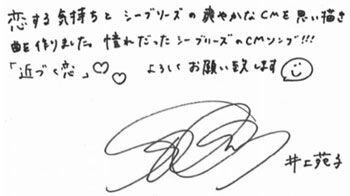 恋する気持ちと シーブリーズの爽やかなCMを思い描き
曲を作りました。憧れだったシーブリーズのCMソング!!!
「近づく恋」♡♡ よろしくお願い致します☺
井上苑子